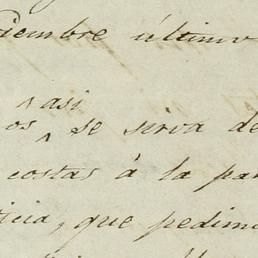 ciembre último
asi
os ^ se sirva de
costas á la par
ticia, que pedimo